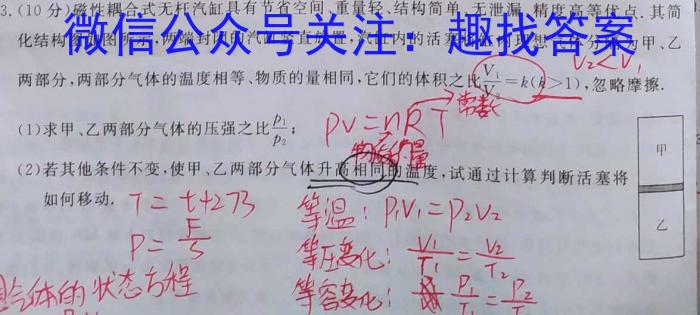 3.(10分)磁性耦合式无杆汽缸具有节省空间、重量轻、结构简单、无泄漏、精度高等优点.其简
化结构图如图所示,两端封闭的汽缸竖直放置,汽缸内的活塞
微信公众号关注：趣找答案
理想气体分 为甲、乙
V₂<V₁
两部分,两部分气体的温度相等、物质的量相同,它们的体积之比V₁/V₂=k(k>1),忽略摩擦.
常数
(1)求甲、乙两部分气体的压强之比p₁/p₂;
PV=nRT
物质的量
(2)若其他条件不变,使甲、乙两部分气体升高相同的温度,试通过计算判断活塞将
如何移动.
甲
乙
T=t+273
等温：P₁V₁=P₂V₂
P=F/S
等压变化：V₁/T₁=V₂/T₂
气体的状态方程
等容变化：P₁/T₁=P₂/T